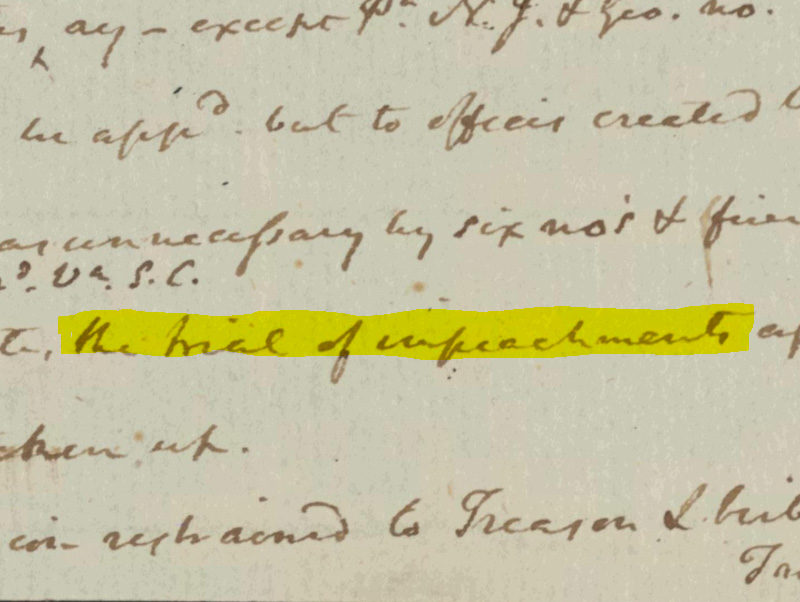 ay - except Pa. N. J. & Geo. no.
be appd. but to offices created
as unnecessary by six no's & five
Va. S. C.
the trial of impeachments
taken up.
restrained to Treason & brib